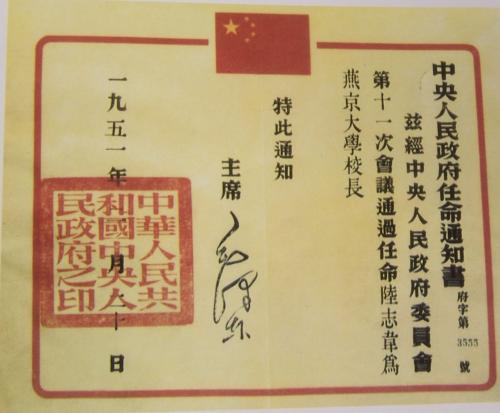 中央人民政府任命通知書
府字第3555號
茲經中央人民政府委員會
第十一次會議通過任命陸志韋爲
燕京大學校長
特此通知
主席 毛澤东
一九五一年二月二十日
中華人民共
和國中央人
民政府之印